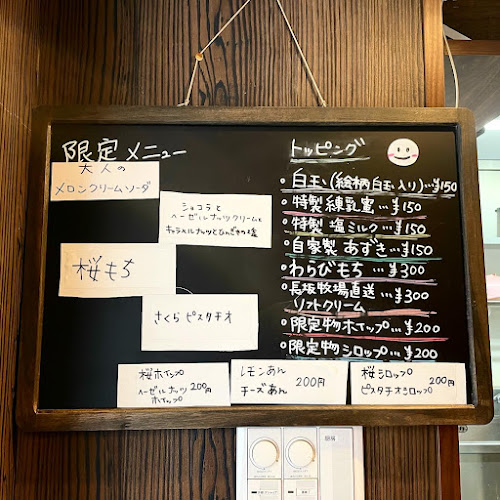 限定メニュー
大人の
メロンクリームソーダ
ショコラと
ヘーゼルナッツクリームと
桜もち
さくらピスタチオ
トッピング
・白玉(絵柄白玉入り)…¥150
・特製練乳蜜…¥150
・特製 塩ミルク…¥150
・自家製 あずき…¥150
・わらびもち…¥300
・長坂牧場直送…¥300
ソフトクリーム
・限定物ホイップ…¥200
・限定物シロップ…¥200
桜ホイップ
ヘーゼルナッツ 200円
ホイップ
レモンあん
チーズあん 200円
桜シロップ
ピスタチオシロップ 200円